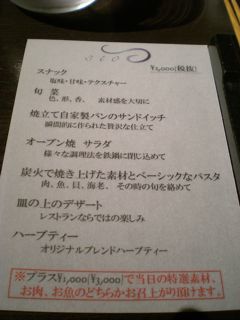 ¥3,000(税抜)
スナック
塩味・甘味・テクスチャー
旬 菜
色、形、香、 素材感を大切に
焼立て自家製パンのサンドイッチ
瞬間的に作られた贅沢な仕立て
オーブン焼 サラダ
様々な調理法を鉄鍋に閉じ込めて
炭火で焼き上げた素材とベーシックなパスタ
肉、魚、貝、海老、 その時の旬を絡めて
皿の上のデザート
レストランならではの楽しみ
ハーブティー
オリジナルブレンドハーブティー
※プラス¥1,000/¥3,000で当日の特選素材、
お肉、お魚のどちらかお召上がり頂けます。